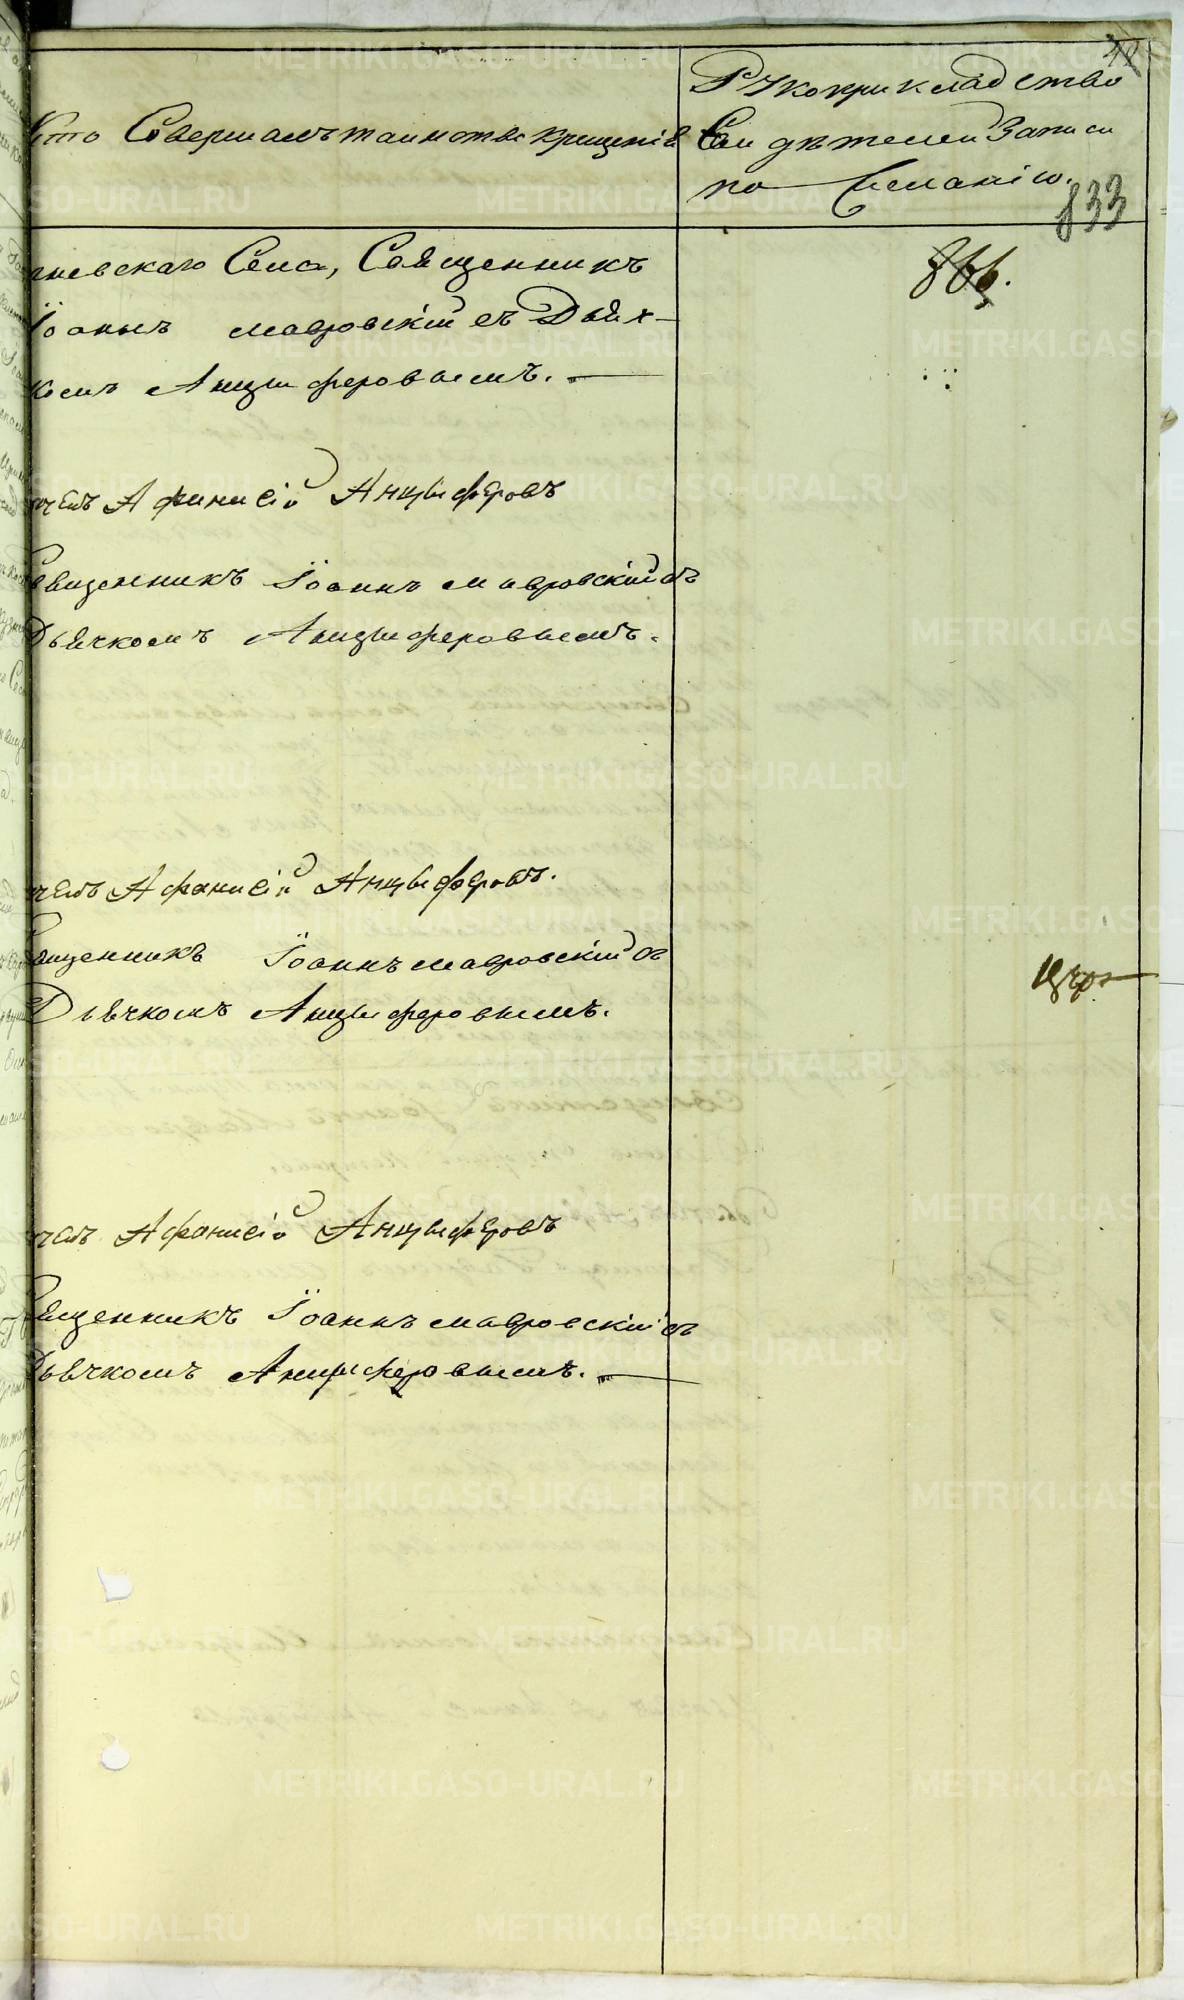 Кто Совершалъ таинство крещенія
Рукоприкладство
Свидѣтелей Записи
по Желанію.
833
866.
Села, Священникъ
Іоаннъ Мавровскій съ Дьяч-
комъ Анцыферовымъ.
Афанисій Анцыферовъ
Священникъ Іоаннъ Мавровскій съ
Дьячкомъ Анцыферовымъ.
Афанисій Анцыферовъ.
Священникъ Іоаннъ Мавровскій съ
Дьячкомъ Анцыферовымъ.
Афанисій Анцыферовъ
Священникъ Іоаннъ Мавровскій съ
Дьячкомъ Анцыферовымъ.
METRIKI.GASO-URAL.RU